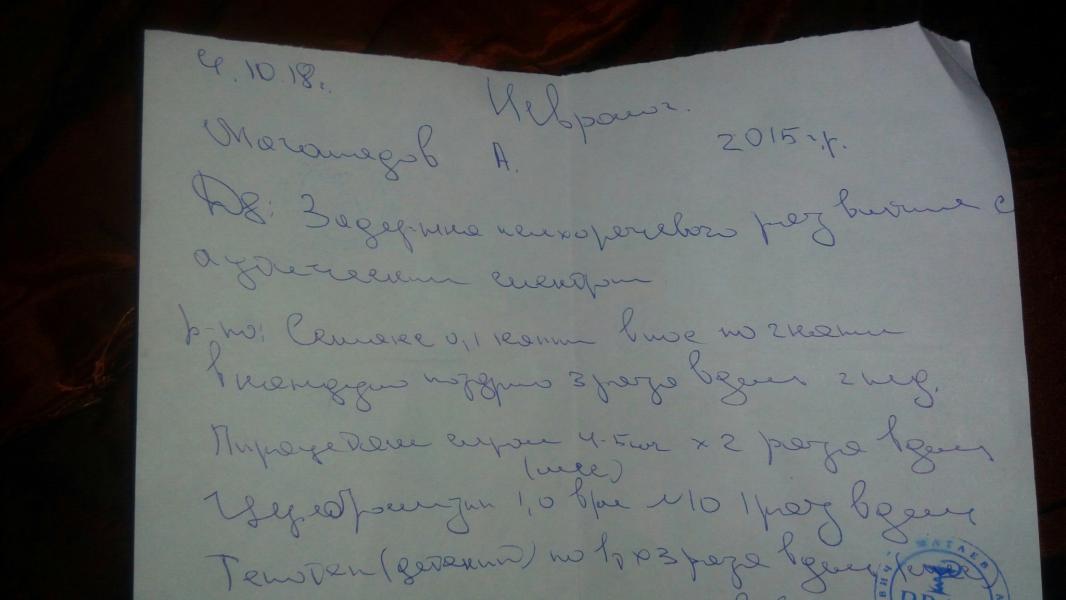 4.10.18г.
Невролог.
Магомедов А. 2015 г.р.
Ds: Задержка психоречевого развития с
аутическим спектром
р-но: Семакс 0,1 капли в нос по 2 капли
в каждую ноздрю 3 раза в день 2 нед.
Пирацетам сироп 4-5мл х 2 раза в день
(мес)
Церебролизин 1,0 в/м N10 1 раз в день
Тенотен (детский) по 1т х 3 раза в день (мес)
ВИЧ · ШАТАЕВ